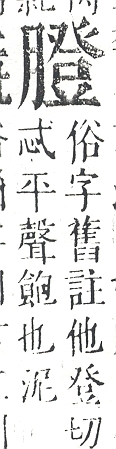 膯
俗字舊註他登切
忒平聲飽也泥